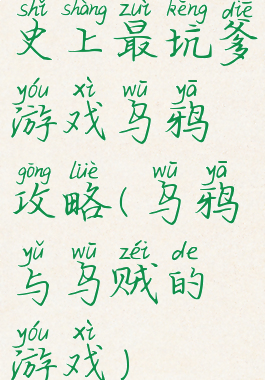 shǐ shàng zuì kēng diē
史上最坑爹
yóu xì wū yā
游戏乌鸦
gōng lüè wū yā
攻略(乌鸦
yǔ wū zéi de
与乌贼的
yóu xì
游戏)